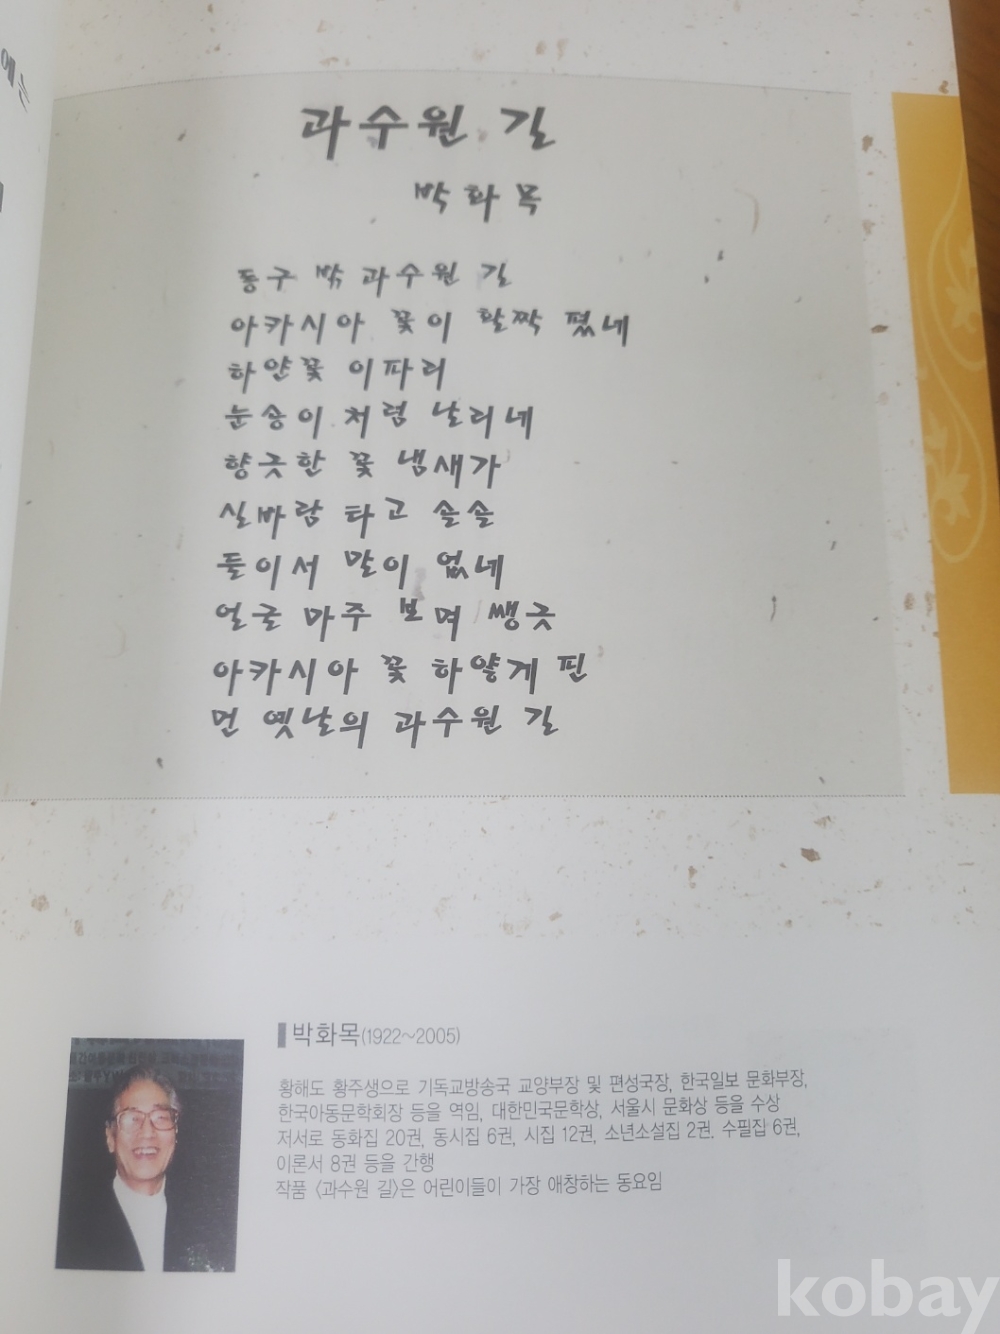 에는
과수원 길
박화목
동구 박 과수원 길
아카시아 꽃이 활짝 폈네
하얀꽃 이파리
눈송이 처럼 날리네
향긋한 꽃 냄새가
실바람 타고 솔솔
둘이서 말이 없네
얼굴 마주 보며 쌩긋
아카시아 꽃 하얗게 핀
먼 옛날의 과수원 길
박화목(1922~2005)
황해도 황주생으로 기독교방송국 교양부장 및 편성국장, 한국일보 문화부장,
한국아동문학회장 등을 역임, 대한민국문학상, 서울시 문화상 등을 수상
저서로 동화집 20권, 동시집 6권, 시집 12권, 소년소설집 2권. 수필집 6권,
이론서 8권 등을 간행
작품 〈과수원 길〉은 어린이들이 가장 애창하는 동요임
kobay